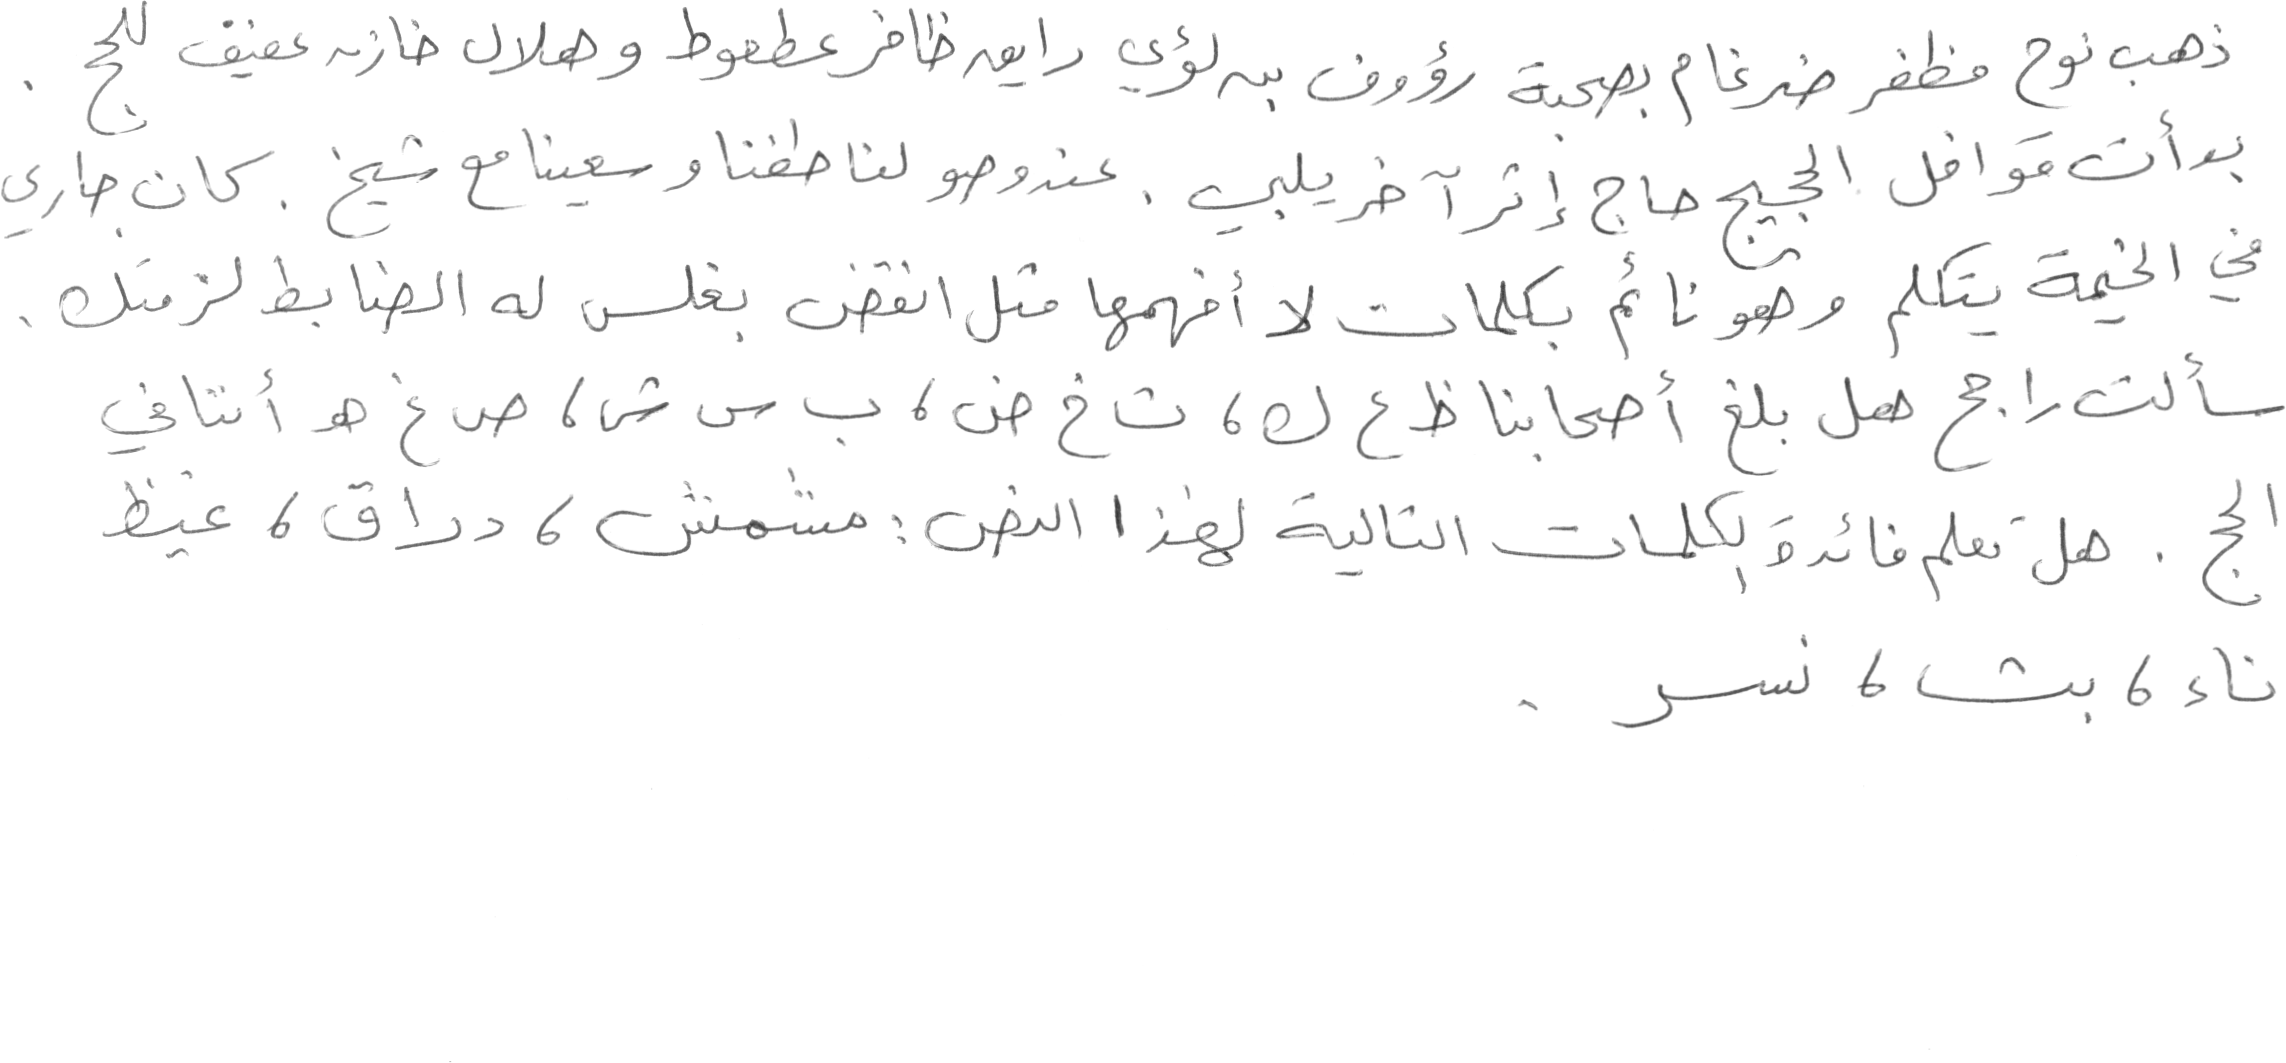 ذهب نوح مظفر ضرغام بصحبة رؤوف بن لؤي رايق ظافر عطعوط و هلال خازن عفيف للحج .
بدأت قوافل الحجيج حاج إثر آخر يلبي . عند وصولنا طفنا و سعينا مع شيخ . كان جاري
في الخيمة يتكلم و هو نائم بكلمات لا أفهمها مثل انقض بغلس له الضابط لزمتك .
سألت راجح هل بلغ أصحابنا ظ ع ك ، ث خ ض ، ب س ش ، ص غ هـ أننا في
الحج . هل تعلم فائدة الكلمات التالية لهذا النص : مشمش ، دراق ، غيظ
ناء ، بث ، نسر .